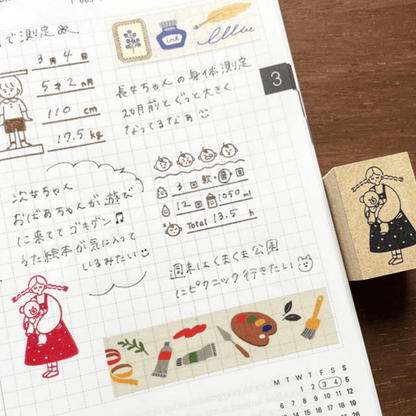 で測定
3月4日
5才2ヵ月
110 cm
17.5 kg
ink
3
長女ちゃんの身体測定
2ヵ月前とぐっと大きく
なってるなぁ
3回 軟
12回 1050ml
Total 13.5 h
次女ちゃん
おばあちゃんが遊び
に来てゴキゲン♪
うた絵本が気に入って
いるみたい
週末はくまくま公園
にピクニック行きたい
M T W T F S S
1 2 3 4 5